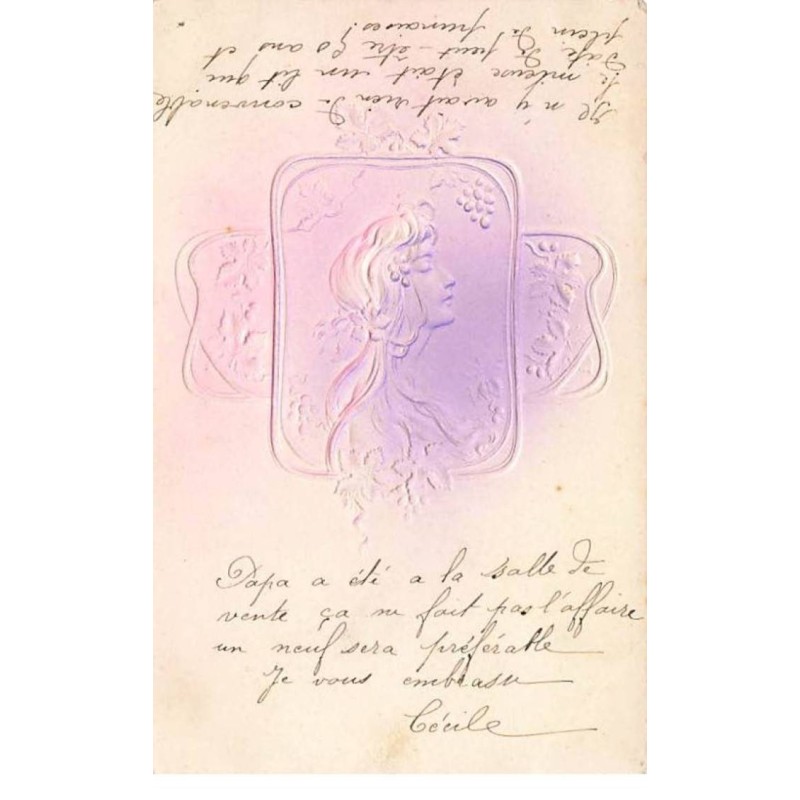 Il n'y avait rien de convenable
le mileure était un lit qui
date de peut-être ans et
plein de punaises!
Papa a été a la salle de
vente ça ne fait pas l'affaire
un neuf sera préférable
Je vous embrasse
Cécile